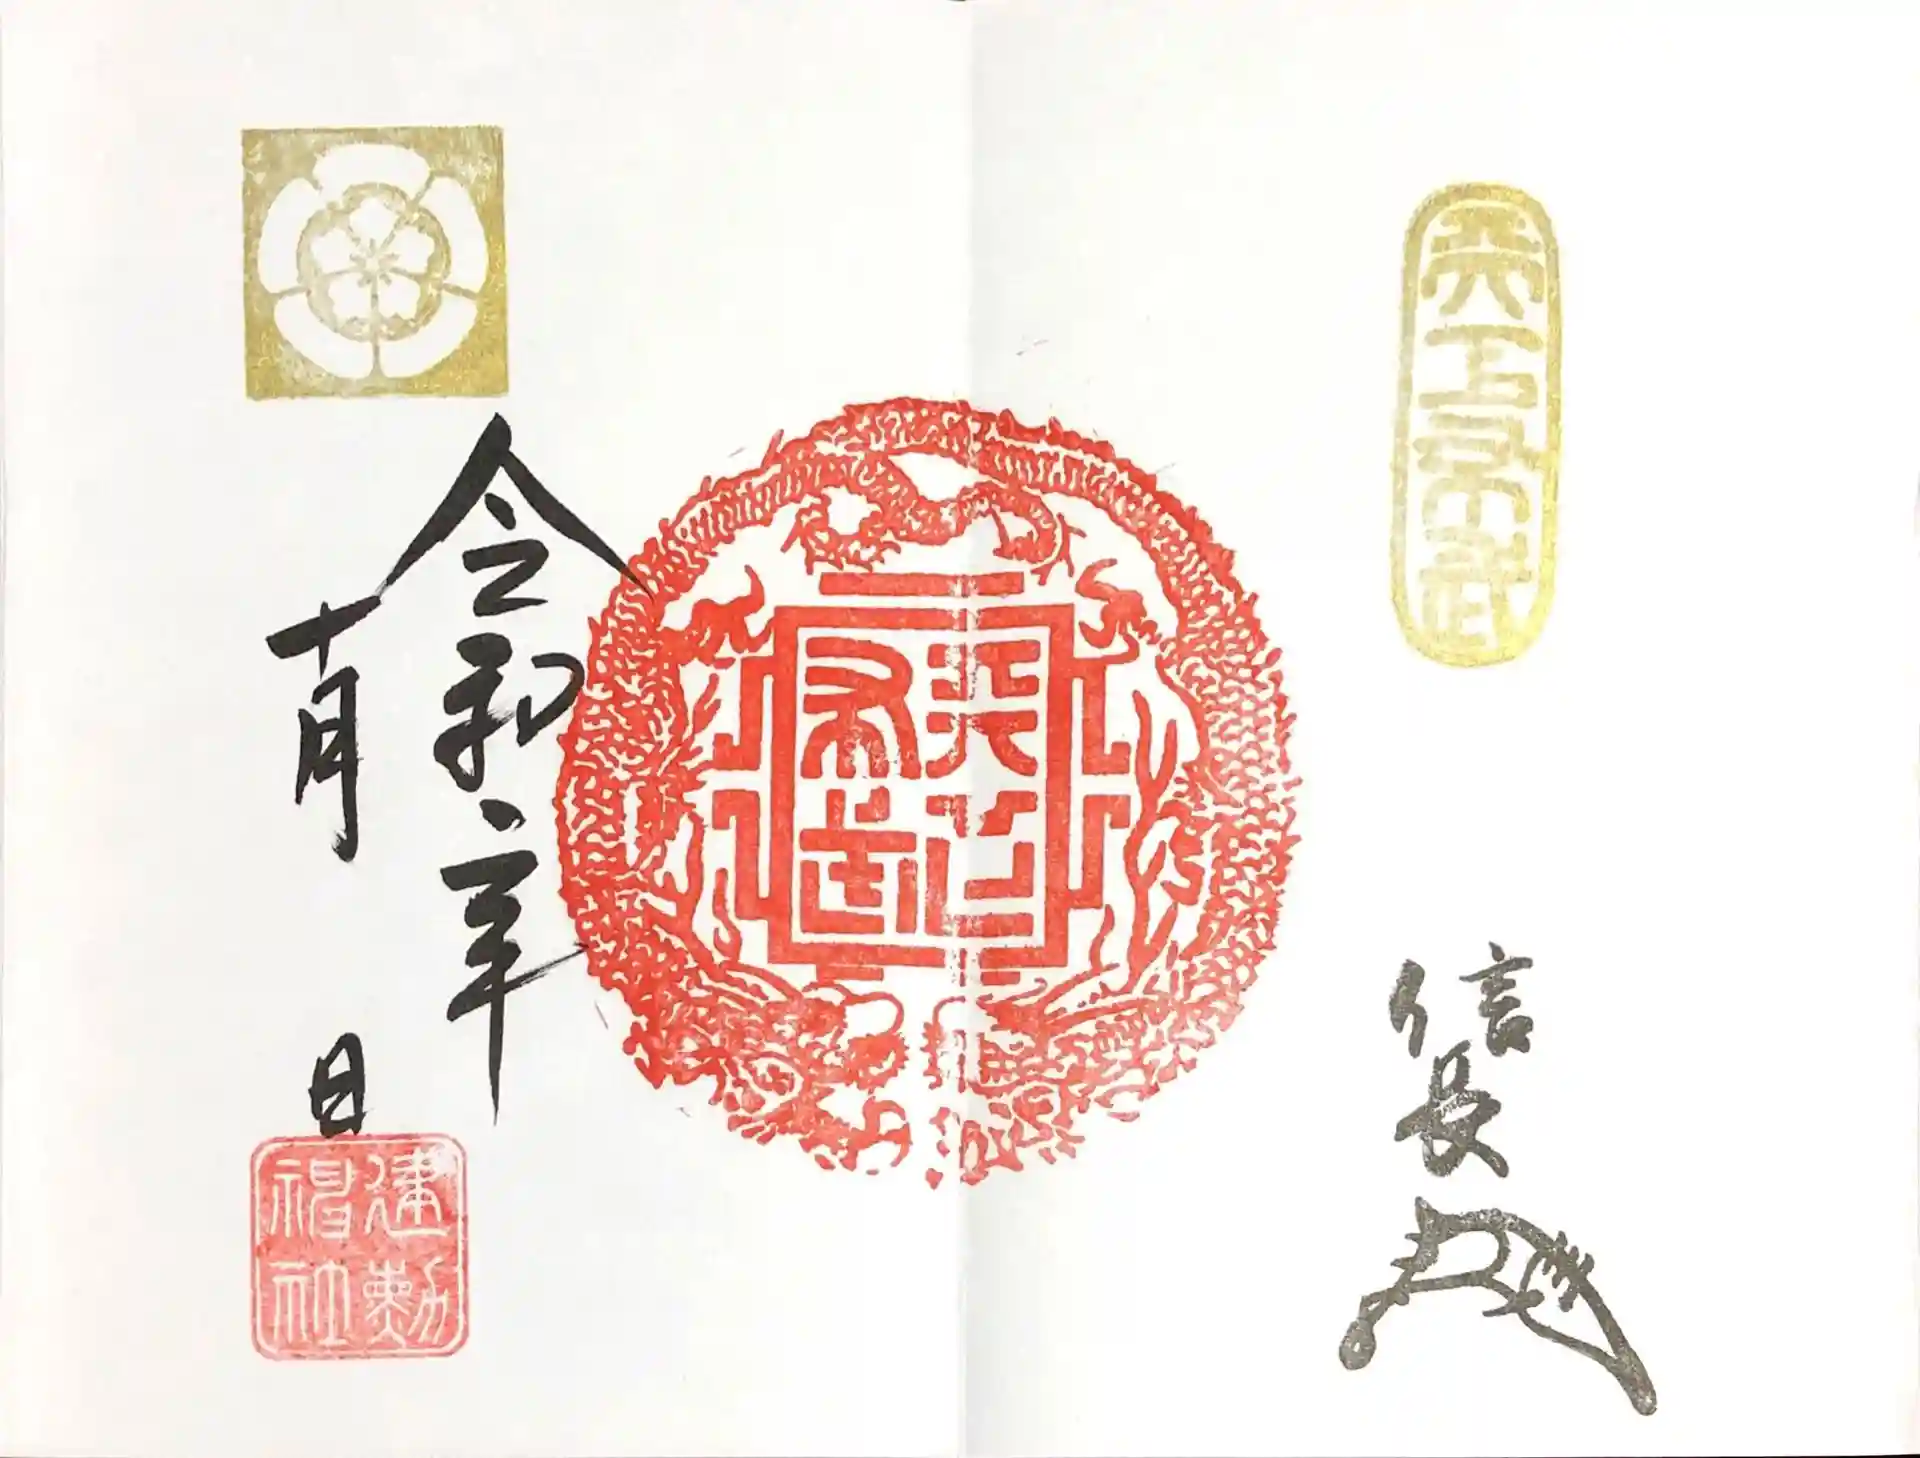 天下布武
信長
天下布武
令和 年
十月 日
建勲
神社